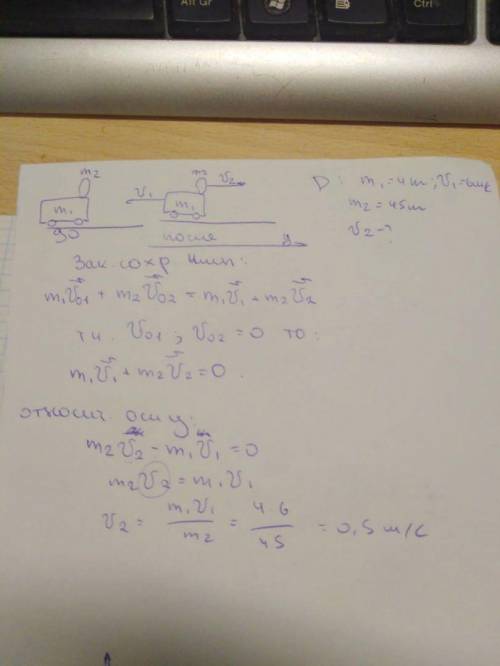 Alt Gr
Ctrl
m₂
m₁
до
v₁
m₂
v₂
m₁
после
y
D: m₁=4m; v₁=6м/с
m₂=45m
v₂-?
Зак. сохр имп:
m₁v⃗₀₁ + m₂v⃗₀₂ = m₁v⃗₁ + m₂v⃗₂
т.к. v₀₁; v₀₂ = 0 то:
m₁v⃗₁ + m₂v⃗₂ = 0.
относит. оси y:
m₂v₂ - m₁v₁ = 0
m₂v₂ = m₁v₁
v₂ = m₁v₁/m₂ = 4·6/45 = 0,5 м/с